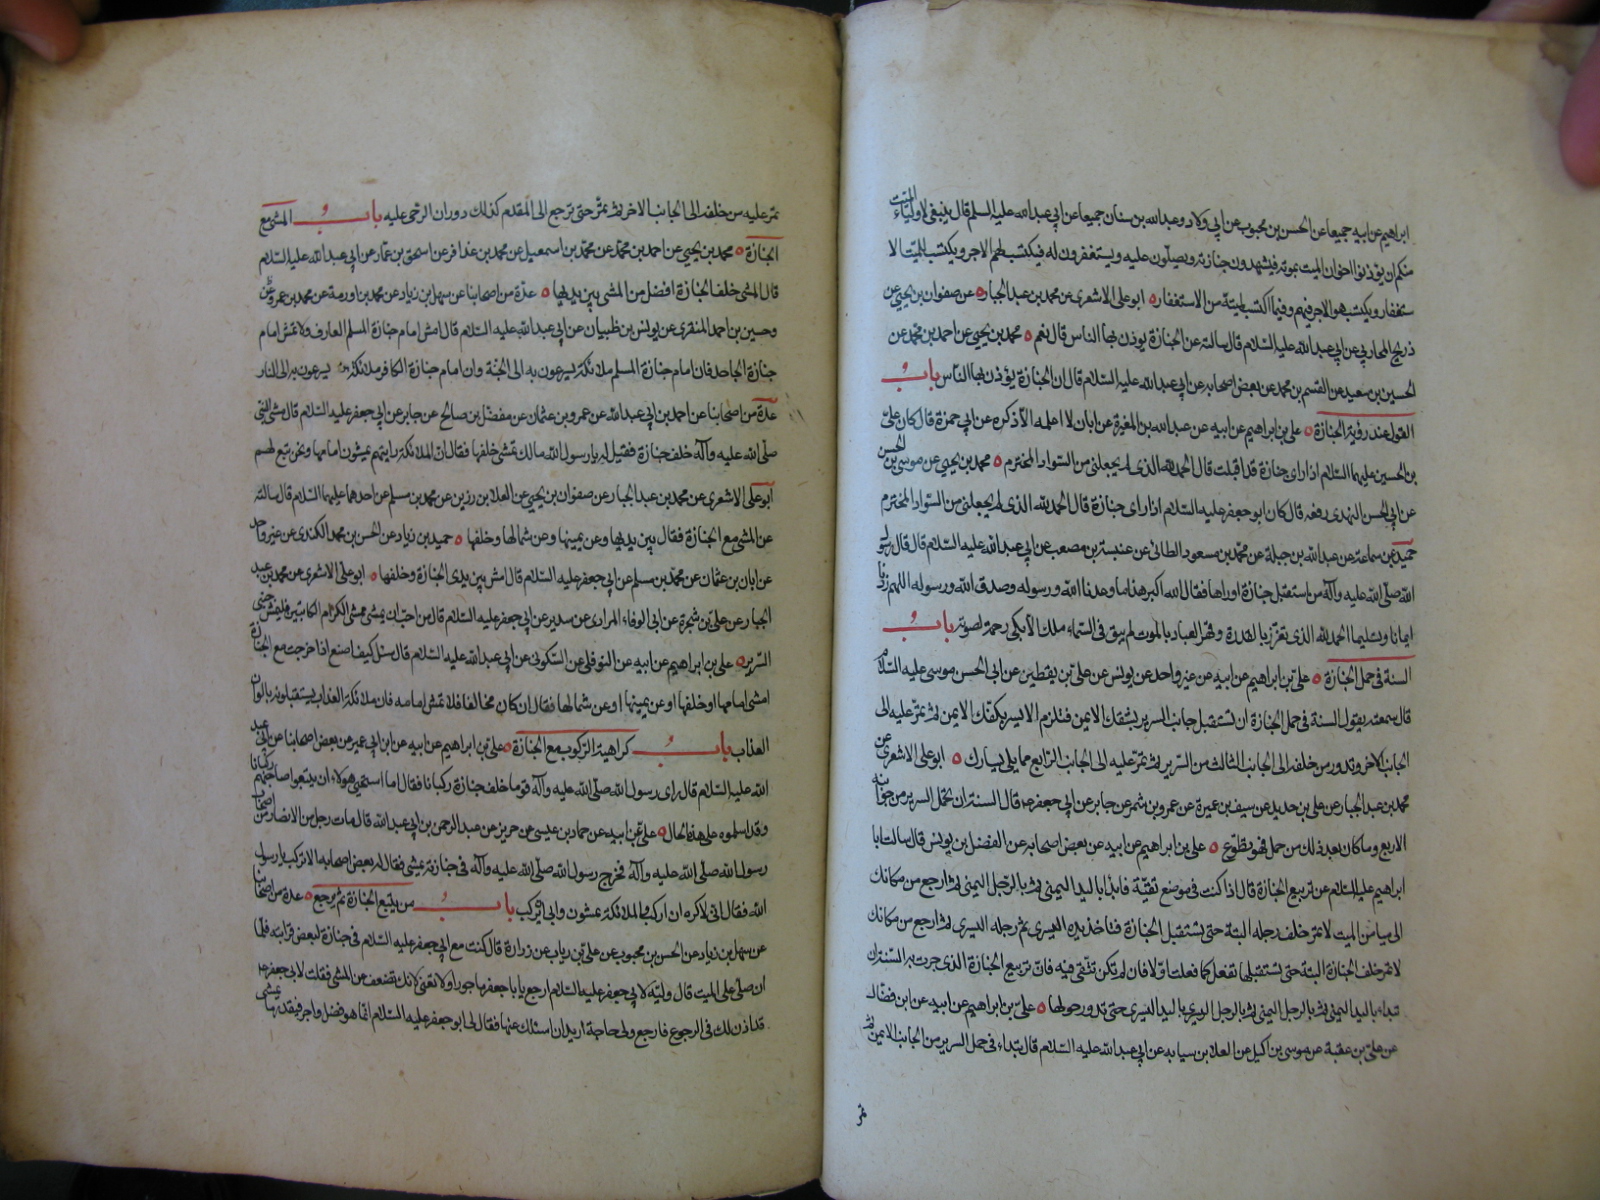 ابراهيم عن ابيه جميعا عن الحسن بن محبوب عن ابي ولاد وعبدالله بن سنان جميعا عن ابي عبدالله عليه السلم قال ينبغي لاولياء الميت
منكم ان يؤذنوا اخوان الميت بموته فيشهدون جنازته ويصلون عليه ويستغفرون له فيكتب لهم الاجر ويكتب للميت الا
ستغفار ويكتب هو الاجر فيهم وفيما اكتسب لميته من الاستغفار ٥ ابو علي الاشعري عن محمد بن عبد الجبار ٥ عن صفوان بن يحيى عن
ذريح المحاربي عن ابي عبدالله عليه السلام قال سالته عن الجنازة يوذن بها الناس قال نعم ٥ محمد بن يحيى عن احمد بن محمد عن
الحسين بن سعيد عن القسم بن محمد عن بعض اصحابه عن ابي عبدالله عليه السلام قال ان الجنازة يؤذن بها الناس باب
القول عند رؤية الجنازة ٥ علي بن ابراهيم عن ابيه عن عبدالله بن المغيرة عن ابان لا اعلمه الا ذكره عن ابي حمزة قال كان علي
بن الحسين عليهما السلام اذا راى جنازة قد اقبلت قال الحمد لله الذي لم يجعلني من السواد المخترم ٥ محمد بن يحيى عن موسى بن الحسن
عن ابي الحسن النهدي رفعه قال كان ابو جعفر عليه السلام اذا راى جنازة قال الحمد لله الذي لم يجعلني من السواد المخترم
حميد عن سماعة عن عبدالله بن جبلة عن محمد بن مسعود الطائي عن عنبسة بن مصعب عن ابي عبدالله عليه السلام قال قال رسول
الله صلى الله عليه وآله من استقبل جنازة او راها فقال الله اكبر هذا ما وعدنا الله ورسوله وصدق الله ورسوله اللهم زدنا
ايمانا وتسليما الحمد لله الذي تعزز بالقدرة وقهر العباد بالموت لم يبق في السماء ملك الا بكى رحمة لصوته باب
السنة في حمل الجنازة ٥ علي بن ابراهيم عن ابيه عن غير واحد عن يونس عن علي بن يقطين عن ابي الحسن موسى عليه السلام
قال سمعته يقول السنة في حمل الجنازة ان تستقبل جانب السرير بشقك الايمن فتلزم الايسر بكفك الايمن ثم تمر عليه الى
الجانب الاخر وتدور من خلفه الى الجانب الثالث من السرير ثم تمر عليه الى الجانب الرابع مما يلي يسارك ٥ ابو علي الاشعري عن
محمد بن عبد الجبار عن علي بن حديد عن سيف بن عميرة عن عمرو بن شمر عن جابر عن ابي جعفر عم قال السنة ان تحمل السرير من جوانبه
الاربع وما كان بعد ذلك من حمل فهو تطوع ٥ علي بن ابراهيم عن ابيه عن بعض اصحابه عن الفضل بن يونس قال سالت ابا
ابراهيم عليه السلام عن تربيع الجنازة قال اذا كنت في موضع تقية فابدأ باليد اليمنى ثم بالرجل اليمنى ثم ارجع من مكانك
الى ميامن الميت لا تمر خلف رجله البتة حتى تستقبل الجنازة فتاخذ يده اليسرى ثم رجله اليسرى ثم ارجع من مكانك
لا تمر خلف الجنازة البتة حتى تستقبلها تفعل كما فعلت اولا فان لم تكن تتقي فيه فان تربيع الجنازة الذي جرت به السنة ان
تبداء باليد اليمنى ثم بالرجل اليمنى ثم بالرجل اليسرى ثم باليد اليسرى حتى تدور حولها ٥ علي بن ابراهيم عن ابيه عن ابن فضال
عن علي بن عقبة عن موسى بن اكيل عن العلا بن سيابه عن ابي عبدالله عليه السلام قال تبداء في حمل السرير من الجانب الايمن ثم
تمر
تمر عليه من خلفه الى الجانب الاخر ثم تمر حتى ترجع الى المقدم كذلك دوران الرحى عليه باب المشي مع
الجنازة ٥ محمد بن يحيى عن احمد بن محمد عن محمد بن اسمعيل عن محمد بن عذافر عن اسحق بن عمار عن ابي عبدالله عليه السلام
قال المشي خلف الجنازة افضل من المشي بين يديها ٥ عدة من اصحابنا عن سهل بن زياد عن محمد بن اورمة عن محمد بن عمرو
وحسين بن احمد المنقري عن يونس بن ظبيان عن ابي عبدالله عليه السلام قال امش امام جنازة المسلم العارف ولا تمش امام
جنازة الجاحد فان امام جنازة المسلم ملائكة يسرعون به الى الجنة وان امام جنازة الكافر ملائكة يسرعون به الى النار
عدة من اصحابنا عن احمد بن ابي عبدالله عن عمرو بن عثمان عن مفضل بن صالح عن جابر عن ابي جعفر عليه السلام قال مشى النبي
صلى الله عليه وآله خلف جنازة فقيل له يا رسول الله مالك تمشي خلفها فقال ان الملائكة رايتهم يمشون امامها ونحن تبع لهم
ابو علي الاشعري عن محمد بن عبد الجبار عن صفوان بن يحيى عن العلا بن رزين عن محمد بن مسلم عن احدهما عليهما السلام قال سالته
عن المشي مع الجنازة فقال بين يديها وعن يمينها وعن شمالها وخلفها ٥ حميد بن زياد عن الحسن بن محمد الكندي عن غير واحد
عن ابان بن عثمان عن محمد بن مسلم عن ابي جعفر عليه السلام قال امش بين يدي الجنازة وخلفها ٥ ابو علي الاشعري عن محمد بن عبد
الجبار عن علي بن شجرة عن ابي الوفاء المرادي عن سدير عن ابي جعفر عليه السلام قال من احب ان يمشي ممشى الكرام الكاتبين فليمش جنبي
السرير ٥ علي بن ابراهيم عن ابيه عن النوفلي عن السكوني عن ابي عبدالله عليه السلام قال سئل كيف اصنع اذا خرجت مع الجنازة
امشي امامها او خلفها او عن يمينها او عن شمالها فقال ان كان مخالفا فلا تمش امامه فان ملائكة العذاب يستقبلونه بالوان
العذاب باب كراهية الركوب مع الجنازة ٥ علي بن ابراهيم عن ابيه عن ابن ابي عمير عن بعض اصحابنا عن ابي عبد
الله عليه السلام قال راى رسول الله صلى الله عليه وآله قوما خلف جنازة ركبانا فقال اما استحيى هولاء ان يتبعوا صاحبهم ركبانا
وقد اسلموه على هذه الحال ٥ علي عن ابيه عن حماد بن عيسى عن حريز عن عبد الرحمن بن ابي عبدالله قال مات رجل من الانصار من اصحاب
رسول الله صلى الله عليه وآله فخرج رسول الله صلى الله عليه وآله في جنازته يمشي فقال له بعض اصحابه الا تركب يا رسول
الله فقال اني لاكره ان اركب والملائكة يمشون وابى ان يركب باب من يتبع الجنازة ثم يرجع ٥ عدة من اصحابنا
عن سهل بن زياد عن الحسن بن محبوب عن علي بن رياب عن زرارة قال كنت مع ابي جعفر عليه السلام في جنازة لبعض قرابته فلما
ان صلى على الميت قال وليه لابي جعفر عليه السلام ارجع يا با جعفر ماجورا ولا تعنى لانك تضعف عن المشي فقلت لابي جعفر عم
قد اذن لك في الرجوع فارجع ولي حاجة اريد ان اسئلك عنها فقال لي ابو جعفر عليه السلام انما هو فضل واجر فبقدر ما يمشي